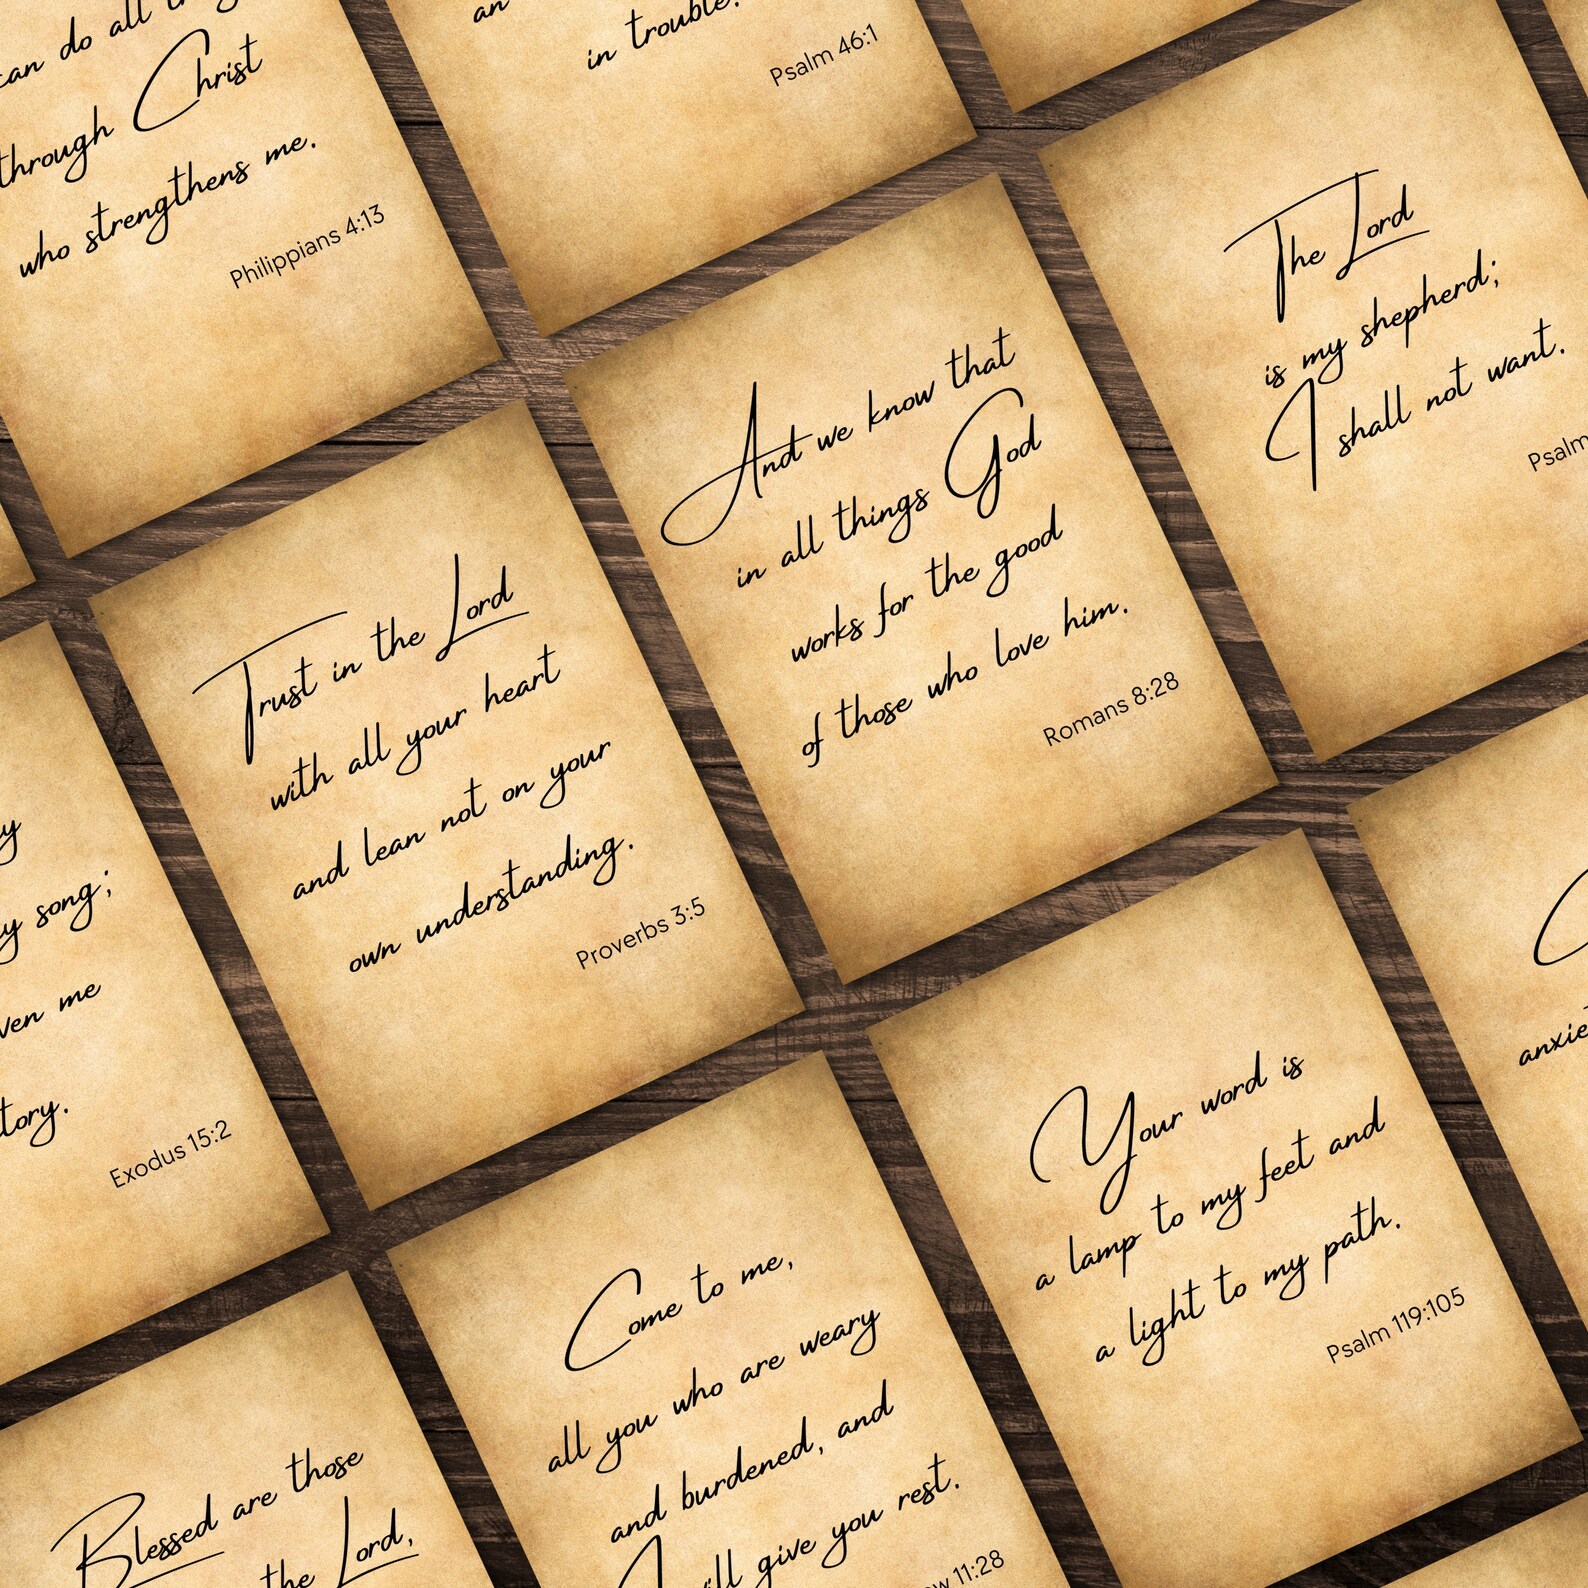 can do all
through Christ
who strengthens me.
Philippians 4:13
in trouble.
Psalm 46:1
The Lord
is my shepherd;
I shall not want.
Psalm
And we know that
in all things God
works for the good
of those who love him.
Romans 8:28
Trust in the Lord
with all your heart
and lean not on your
own understanding.
Proverbs 3:5
song;
me
Exodus 15:2
Your word is
a lamp to my feet and
a light to my path.
Psalm 119:105
Come to me,
all you who are weary
and burdened, and
I will give you rest.
11:28
Blessed are those
the Lord,